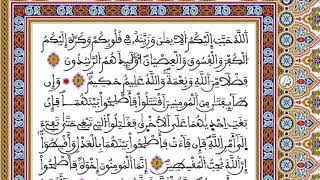 اَ۬للَّهَ حَبَّبَ إِلَيْكُمُ اُ۬لِايمَٰنَ وَزَيَّنَهُۥ فِے قُلُوبِكُمْ وَكَرَّهَ إِلَيْكُمُ
اُ۬لْكُفْرَ وَالْفُسُوقَ وَالْعِصْيَانَ أُوْلَٰٓئِكَ هُمُ اُ۬لرَّٰشِدُونَ
فَضْلاٗ مِّنَ اَ۬للَّهِ وَنِعْمَةٗ وَاللَّهُ عَلِيمٌ حَكِيمٞ وَإِن
طَآئِفَتَٰنِ مِنَ اَ۬لْمُومِنِينَ اَ۪قْتَتَلُواْ فَأَصْلِحُواْ بَيْنَهُمَا فَإِنۢ
بَغَتِ اِحْدَيٰهُمَا عَلَي اَ۬لُاخْر۪يٰ فَقَٰتِلُواْ اُ۬لتِے تَبْغِے حَتَّيٰ تَفِےٓءَ
اِ۪لَيٰٓ أَمْرِ اِ۬للَّهِ فَإِن فَآءَتْ فَأَصْلِحُواْ بَيْنَهُمَا بِالْعَدْلِ وَأَقْسِطُوٓاْ
إِنَّ اَ۬للَّهَ يُحِبُّ اُ۬لْمُقْسِطِينَ إِنَّمَا اَ۬لْمُومِنُونَ إِخْوَةٞ فَأَصْلِحُواْ